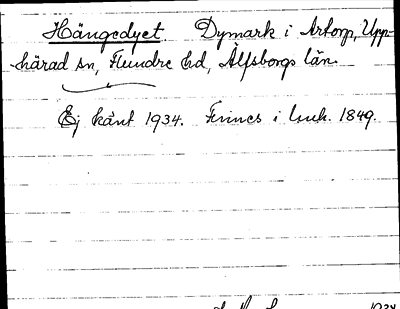 Hängedyet Dymark i Artorp, Upp-
härad sn, Flundre hd, Älfsborgs län.
Ej känt 1934. Finnes i Lmk. 1849.